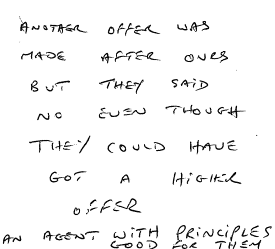 ANOTHER OFFER WAS
MADE AFTER OURS
BUT THEY SAID
NO EVEN THOUGH
THEY COULD HAVE
GOT A HIGHER
OFFER
AN AGENT WITH PRINCIPLES
GOOD FOR THEM